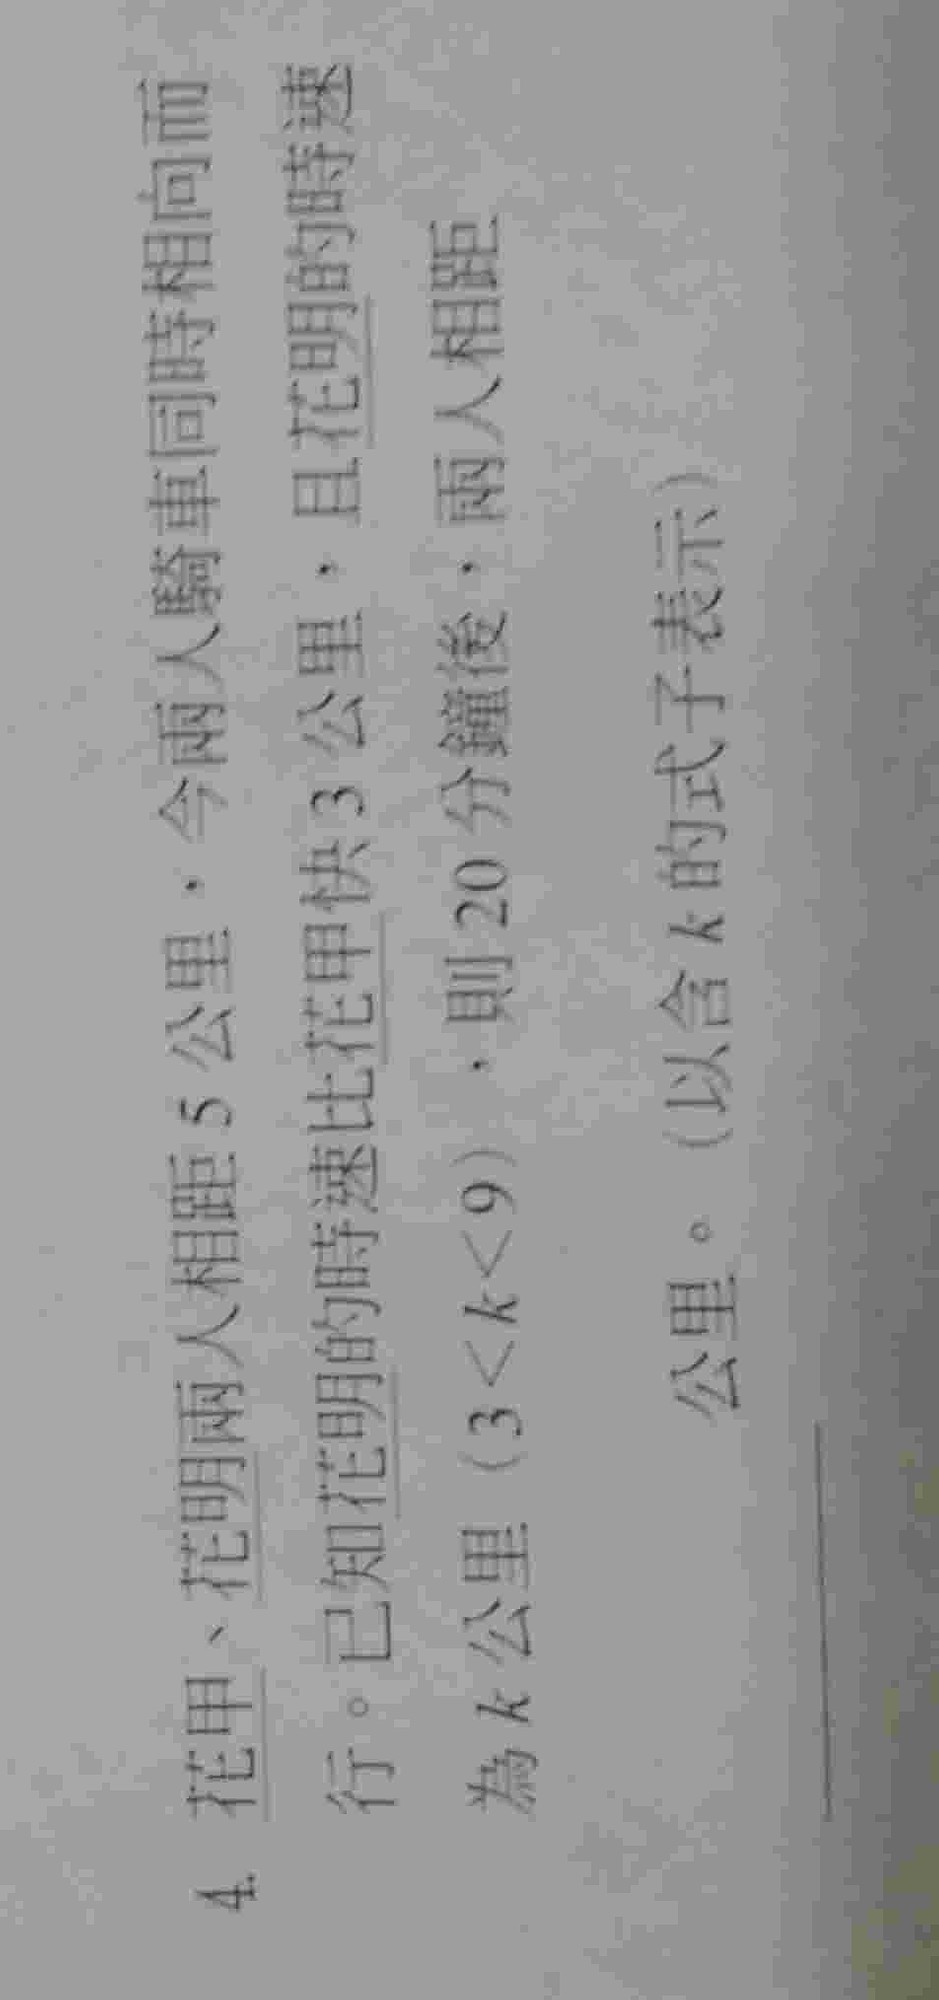 4. 花甲、花明兩人相距 5 公里，今兩人騎車同時相向而
行。已知花明的時速比花甲快 3 公里，且花明的時速
為 k 公里（3＜k＜9），則 20 分鐘後，兩人相距
公里。（以含 k 的式子表示）